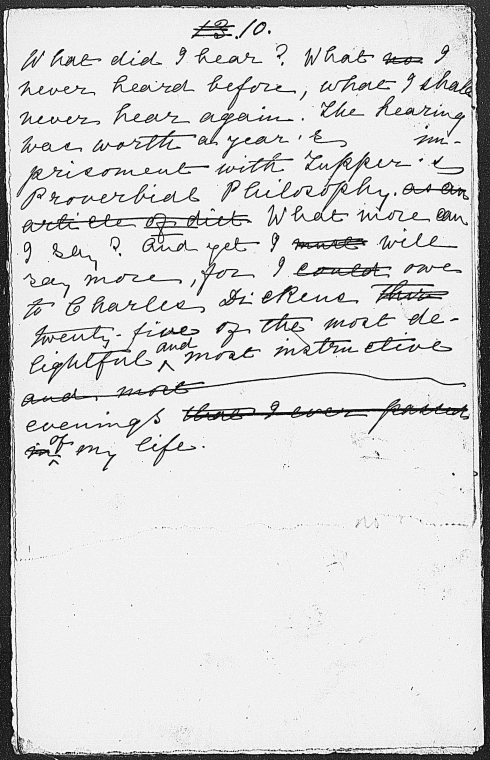 13. 10.
What did I hear? What no I
never heard before, what I shall
never hear again. The hearing
was worth a year's im-
prisoment with Tupper's
Proverbial Philosophy. as an
article of diet. What more can
I say? And yet I must will
say more, for I could owe
to Charles Dickens this
twenty-five of the most de-
lightful and most instructive
and most
evenings that I ever passed
in of my life.